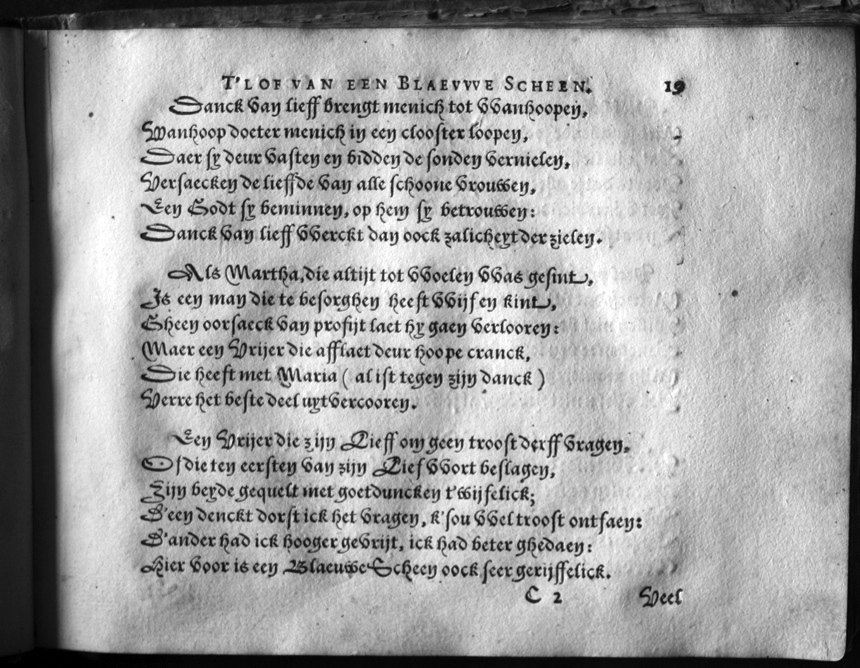 T'LOF VAN EEN BLAEVWE SCHEEN. 19
Danck van lieff brengt menich tot VVanhoopen,
Wanhoop doeter menich in een clooster loopen,
Daer sy deur vasten en bidden de sonden vernielen,
Versaecken de lieffde van alle schoone vrouwen,
Een Godt sy beminnen, op hem sy betrouwen:
Danck van lieff VVerckt dan oock zalicheyt der zielen.
Als Martha, die altijt tot VVoelen VVas gesint,
Is een man die te besorghen heeft VVijf en kint,
Gheen oorsaeck van profijt laet hy gaen verlooren:
Maer een Vrijer die afflaet deur hoope cranck,
Die heeft met Maria ( al ist tegen zijn danck )
Verre het beste deel uyt vercooren.
Een Vrijer die zijn Lieff om geen troost derff vragen,
Of die ten eersten van zijn Lief VVort beslagen,
Zijn beyde gequelt met goetduncken t'wijfelick;
D'een denckt dorst ick het vragen, k'sou VVel troost ontfaen:
D'ander had ick hooger gevrijt, ick had beter ghedaen:
Hier voor is een Blaeuwe Scheen oock seer gerijffelick.
C 2 Veel